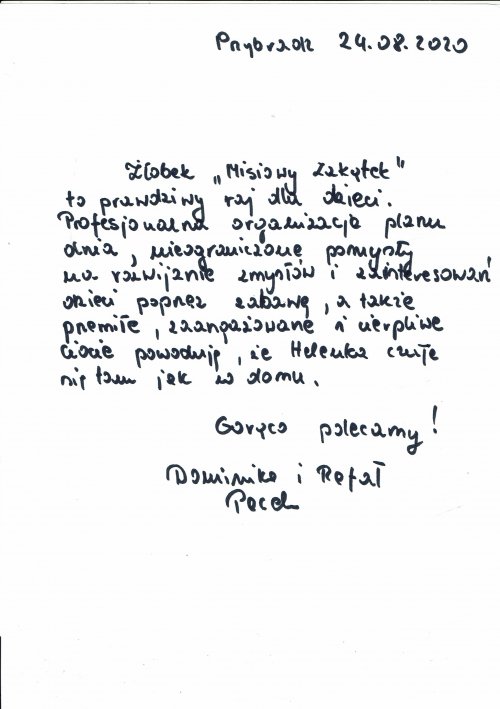 Przybradz 24.08.2020
Żłobek „Misiowy Zakątek"
to prawdziwy raj dla dzieci.
Profesjonalna organizacja planu
dnia, nieograniczone pomysły
na rozwijanie zmysłów i zainteresowań
dzieci poprzez zabawę, a także
przemiłe, zaangażowane i cierpliwe
ciocie powodują, że Helenka czuje
się tam jak w domu.
Gorąco polecamy!
Dominika i Rafał